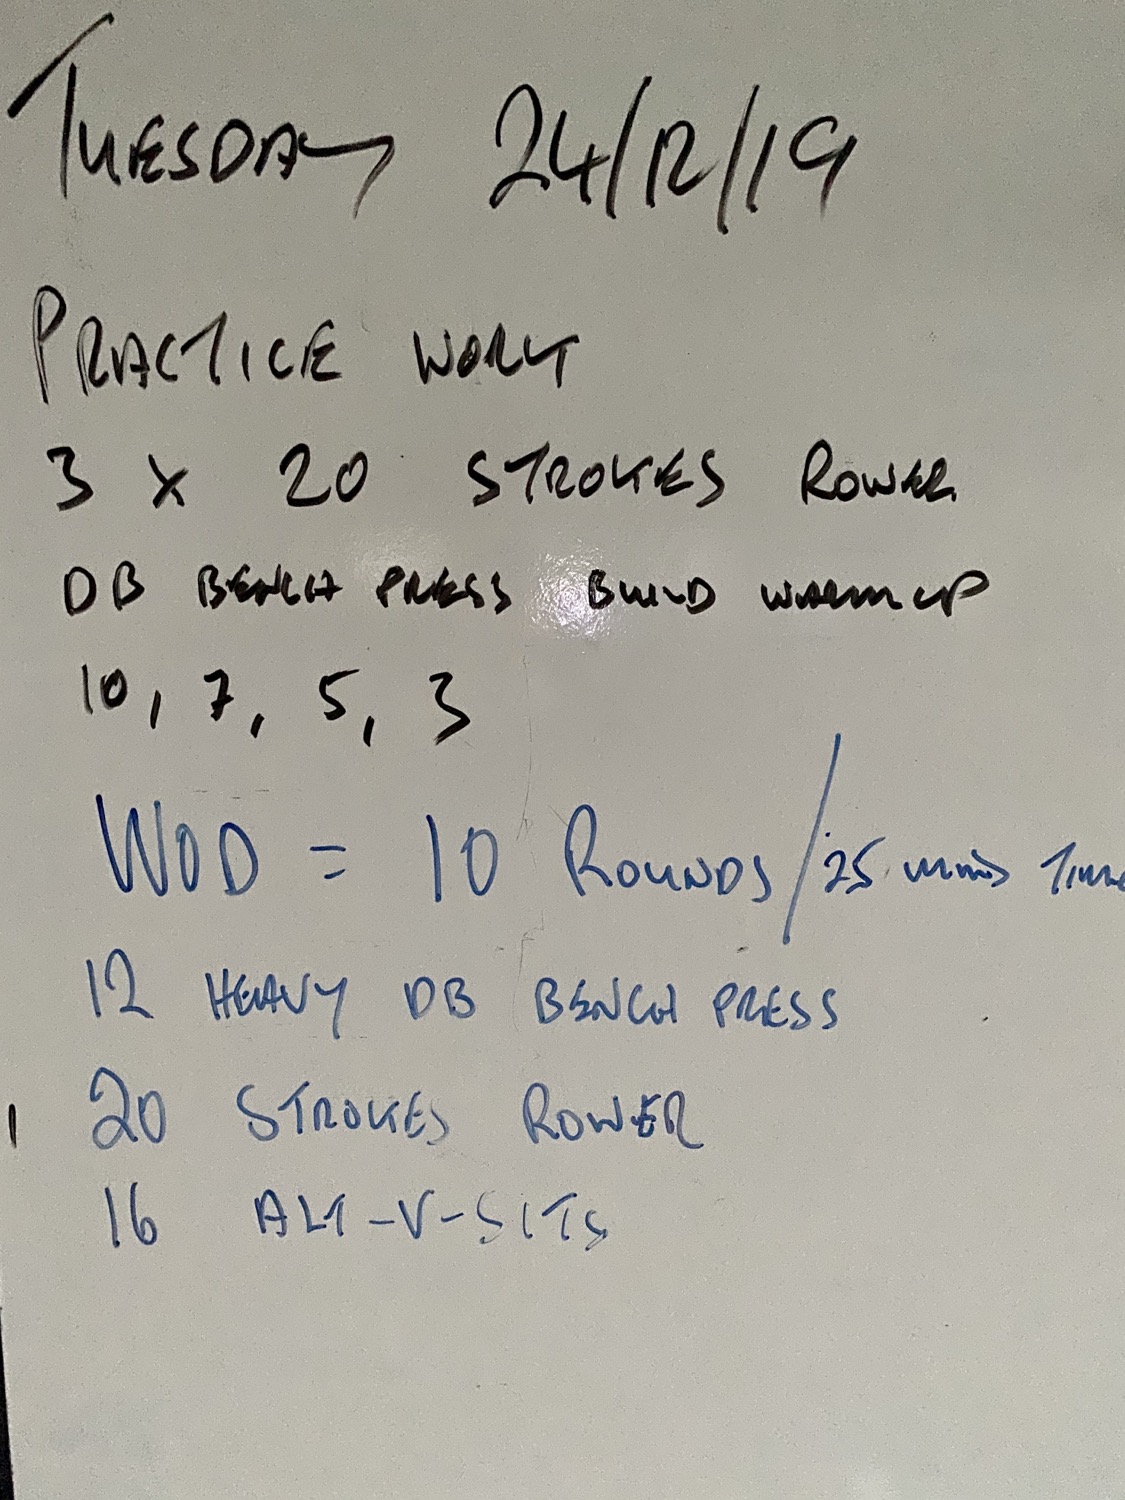 TUESDAY 24/12/19
PRACTICE WORK
3 x 20 STROKES ROWER
DB BENCH PRESS BUILD WARM UP
10, 7, 5, 3
WOD = 10 ROUNDS / 25 mins
12 HEAVY DB BENCH PRESS
20 STROKES ROWER
16 ALT-V-SITS